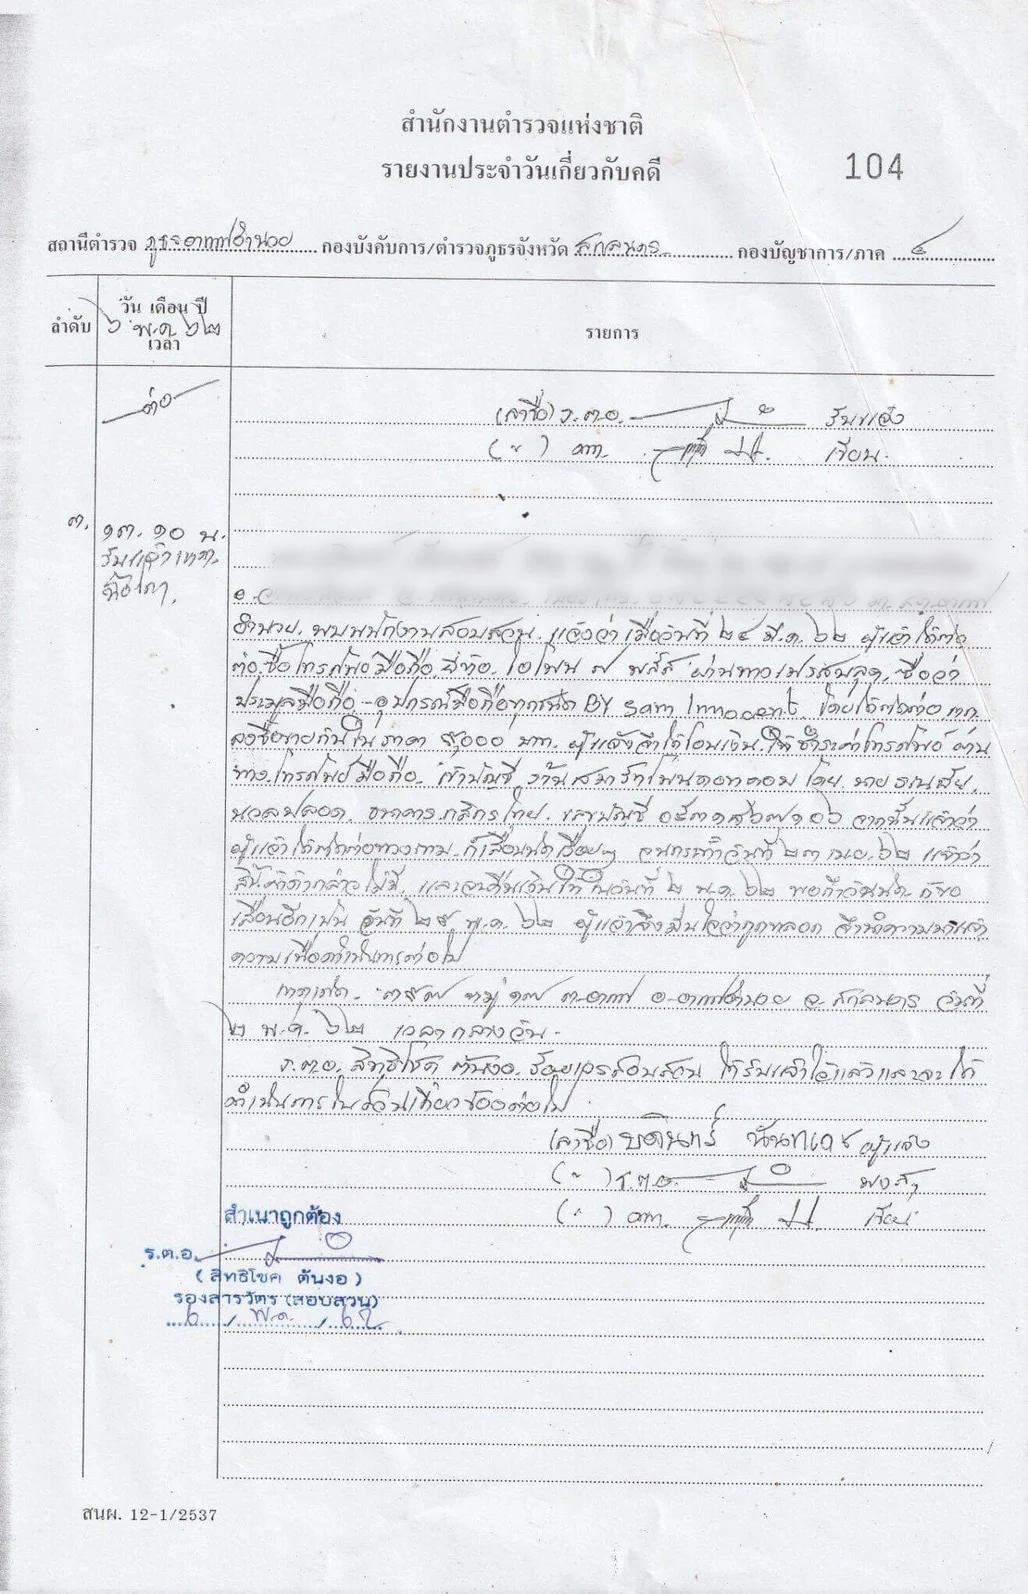 สำนักงานตำรวจแห่งชาติ
รายงานประจำวันเกี่ยวกับคดี
104
สถานีตำรวจ ภูธรอากาศอำนวย กองบังคับการ/ตำรวจภูธรจังหวัด สกลนคร กองบัญชาการ/ภาค ๔
ลำดับ
วัน เดือน ปี
๖ พ.ค. ๖๒
เวลา
รายการ
ต่อ
(ลงชื่อ) ร.ต.อ. รับแจ้ง
( " ) เขียน
๓.
๑๓.๑๐ น.
รับแจ้งเหตุ
ฉ้อโกง
อำนวย. พบพนักงานสอบสวน แจ้งว่า เมื่อวันที่ ๒๔ มี.ค. ๖๒ ผู้แจ้งได้ติด
ต่อซื้อโทรศัพท์มือถือ ยี่ห้อ ไอโฟน ๗ พลัส ผ่านทางเฟสบุคุ๊ค ชื่อว่า
ประมูลมือถือ-อุปกรณ์มือถือทุกชนิด BY Sam Innocent โดยได้ติดต่อ
ซื้อขายกันในราคา บาท ผู้แจ้งได้โอนเงิน ชำระค่าโทรศัพท์ ผ่าน
ทางโทรศัพท์มือถือ เข้าบัญชี ร้านสมาร์ทโฟนดอทคอม โดย นาย ธนชัย
นวลปลอด ธนาคารกสิกรไทย เลขบัญชี จากนั้นแจ้งว่า
ผู้แจ้งได้ติดต่อทวงถาม ก็เลื่อนนัดเรื่อยๆ จนกระทั่งวันที่ ๒๓ เม.ย. ๖๒ แจ้งว่า
สินค้าดังกล่าวไม่มี และจะคืนเงินให้ ในวันที่ ๒ พ.ค. ๖๒ พอถึงวันนัด ก็ขอ
เลื่อนอีกเป็น วันที่ ๒๕ พ.ค. ๖๒ ผู้แจ้งจึงมั่นใจว่าถูกหลอก จึงนำความมาแจ้ง
ความเพื่อดำเนินการต่อไป
เหตุเกิด หมู่ ๑๗ ต.อากาศ อ.อากาศอำนวย จ.สกลนคร วันที่
๒ พ.ค. ๖๒ เวลากลางวัน
ร.ต.อ. สิทธิโชค ตันงอ รอง สอบสวน ได้รับแจ้งไว้แล้วและจะได้
ดำเนินการในส่วนเกี่ยวข้องต่อไป
(ลงชื่อ) บดินทร์ ผู้แจ้ง
( " ) ร.ต.อ.
( " ) เขียน
สำเนาถูกต้อง
ร.ต.อ.
( สิทธิโชค ตันงอ )
รองสารวัตร (สอบสวน)
๖ / พ.ค. / ๖๒
สนผ. 12-1/2537